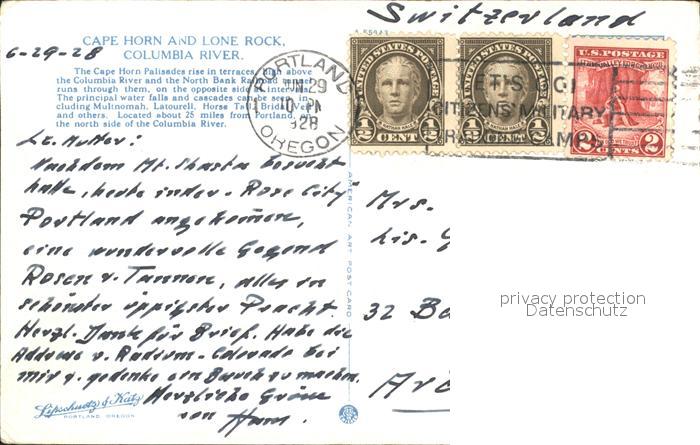 Switzerland
6-29-28
CAPE HORN AND LONE ROCK,
COLUMBIA RIVER.
The Cape Horn Palisades rise in terraces high above
the Columbia River and the North Bank Railroad
runs through them, on the opposite side
The principal water falls and cascades can be seen, in
cluding Multnomah, Latourell, Horse Tail
and others. Located about 25 miles from Portland, on
the north side of the Columbia River.
PORTLAND
JUN 29
10 PM
1928
OREGON
CITIZENS MILITARY
UNITED STATES POSTAGE
NATHAN HALE
1/2 CENT 1/2
UNITED STATES POSTAGE
NATHAN HALE
1/2 CENT 1/2
U.S. POSTAGE
2 CENTS 2
Lb. Mutter!
Nachdem Mt. Shasta besucht
habe, heute in der "Rose City"
Portland angekommen,
eine wundervolle Gegend
Rosen v. Tannen, alles in
schönster üppigster Pracht.
Herzl. Dank für Brief. Habe die
Address v. Radium - Colorado bei
mir u. gedenke den Besuch zu machen.
Herzliche Grüsse
von Hans.
Mrs.
Lis. G
32 Ba
Lipschuetz & Katz
PORTLAND, OREGON
AMERICAN ART POST CARD
privacy protection
Datenschutz